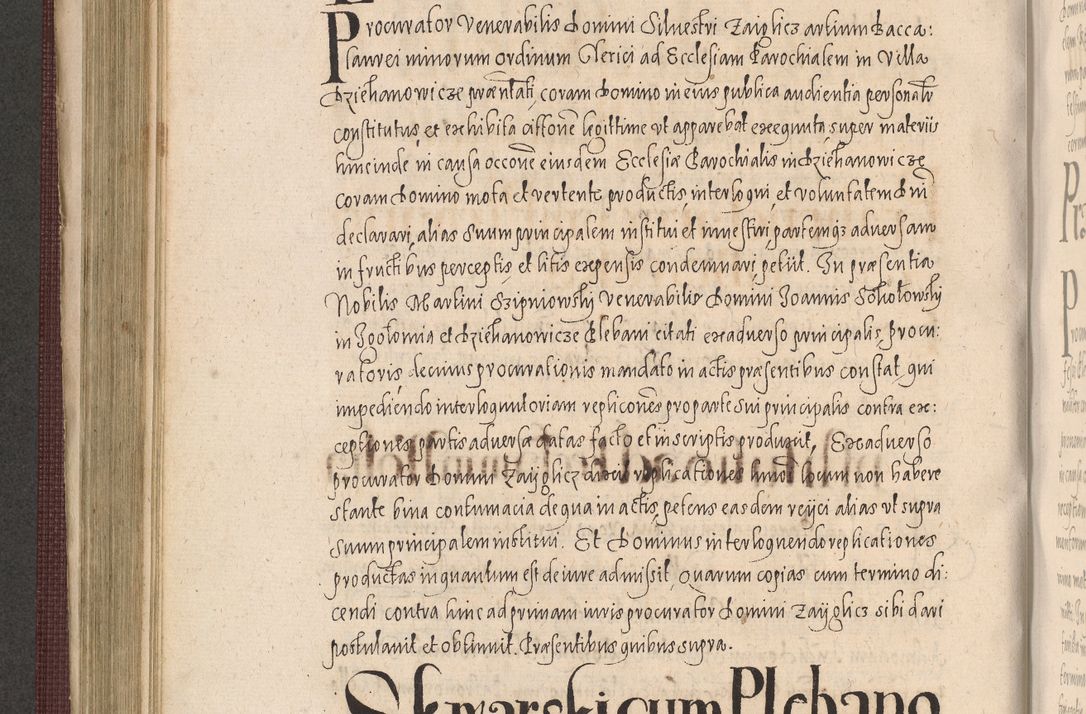 Procurator Venerabilis Domini Silvestri Zaiglicz artium Bacca:
laurei minorum ordinum Clerici ad Ecclesiam Parochialem in Villa
Dziekanowicze præntati, coram Domino in eius publica audientia personalr
constitutus et exhibita citône legittime ut apparebat exequuta super materiis
hincinde in causa occône eiusdem Ecclesiæ Parochialis in Dziekanowicze
coram Domino mota et vertente productis, interloqui, et voluntatem Dni
declarari, alias Suum principalem institui et investiri, partemq3 adversam
in fructibus perceptis et litis expensis condemnari petiit. In præsentia
Nobilis Martini Szipniowski Venerabilis Domini Joannis Sokolowski
in Igolomia et Dziekanowicze Plebani citati exadverso principalis, Procu:
ratoris, de cuius procurationis mandato in actis præsentibus constat, qui
impediendo interloquutoriam replicones pro parte Sui principalis contra ex:
ceptiones partis adversæ datas facto et in scriptis produxit, Exadverso
procurator Domini Zaiiglicz dixit replicationes huiusmodi locum non habere
stante bina contumacia de qua in actis, petens easdem reijci alias ut supra
Suum principalem institui. Et Dominus interloquendo replicationes
productas inquantum est de iure admisit, Quarum copias cum termino di:
cendi contra hinc ad primam iuris procurator Domini Zaijglicz sibi dari
postulavit et obtinuit. Præsentibus quibus supra.
Skwarski cum Plebano